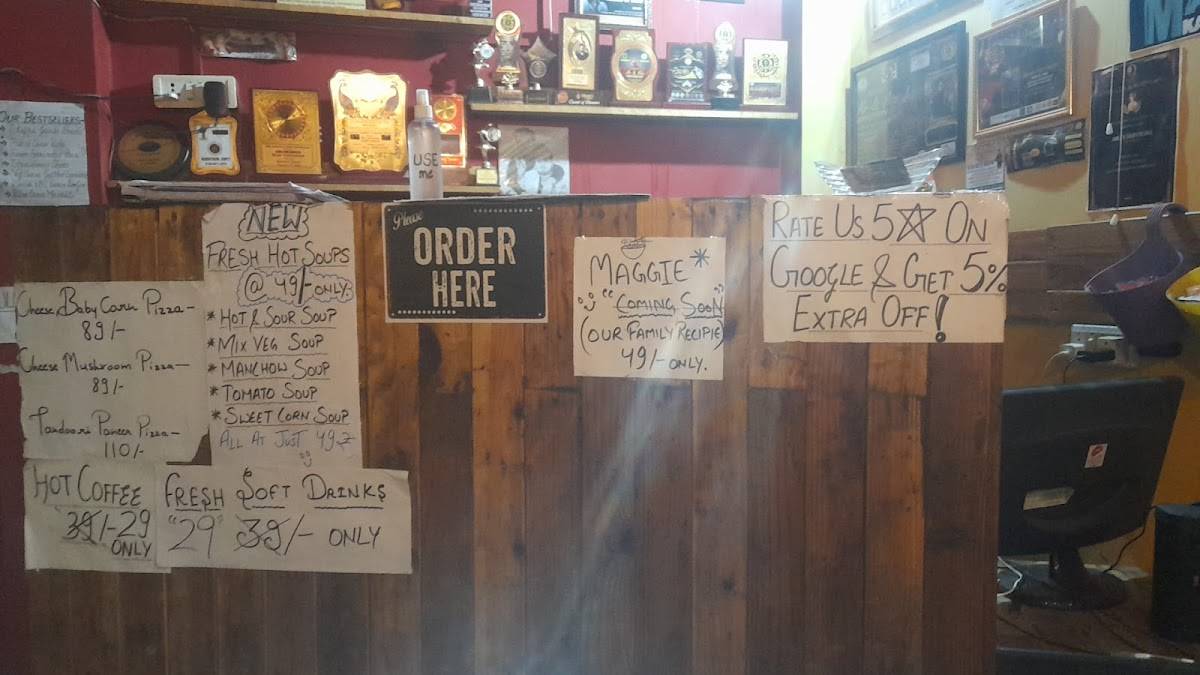 OUR BESTSELLERS-
USE
me
NEW
FRESH HOT SOUPS
@ 49/- ONLY.
* HOT & SOUR SOUP
* MIX VEG SOUP
* MANCHOW SOUP
* TOMATO SOUP
* SWEET CORN SOUP
ALL AT JUST 49
Please
ORDER
HERE
MAGGIE*
"COMING SOON"
(OUR FAMILY RECIPIE)
49/- ONLY.
RATE US 5☆ ON
GOOGLE & GET 5%
EXTRA OFF!
Cheese Baby Corn Pizza-
89/-
Cheese Mushroom Pizza-
89/-
Tandoori Paneer Pizza-
110/-
HOT COFFEE
39/-29
ONLY
FRESH SOFT DRINKS
"29" 39/- ONLY